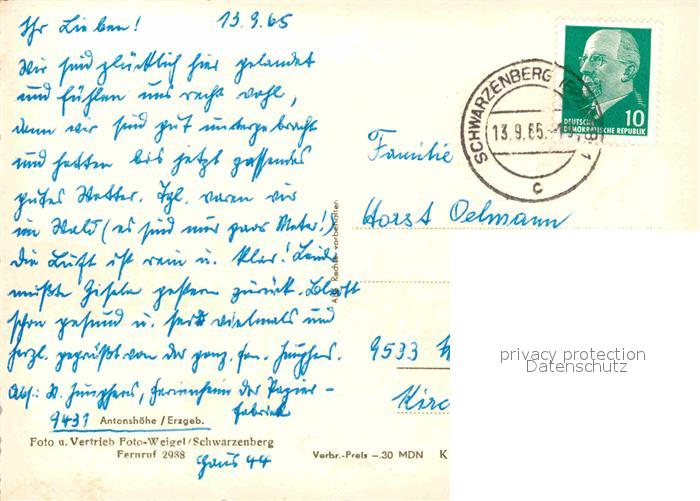 Ihr Lieben! 13.9.65
Wir sind glücklich hier gelandet
und fühlen uns recht wohl,
denn wir sind gut untergebracht
und hatten bis jetzt passendes
gutes Wetter. Tgl. waren wir
im Wald (es sind nur paar Meter!)
die Luft ist rein u. klar! Leider
mußte Gisela gestern zurück. Bleibt
schön gesund u. seid vielmals und
herzl. gegrüßt von der ganz. Fam.
Abs: Ferienheim der Papier-
fabrik
9431 Antonshöhe / Erzgeb.
Foto u. Vertrieb Foto-Weigel/Schwarzenberg
Fernruf 2988
Haus 44
Verbr.-Preis -.30 MDN K
Alle Rechte vorbehalten
SCHWARZENBERG
13.9.65.
c
1
DEUTSCHE
DEMOKRATISCHE REPUBLIK
10
Familie
Horst Oelmann
9533
Kirc
privacy protection
Datenschutz